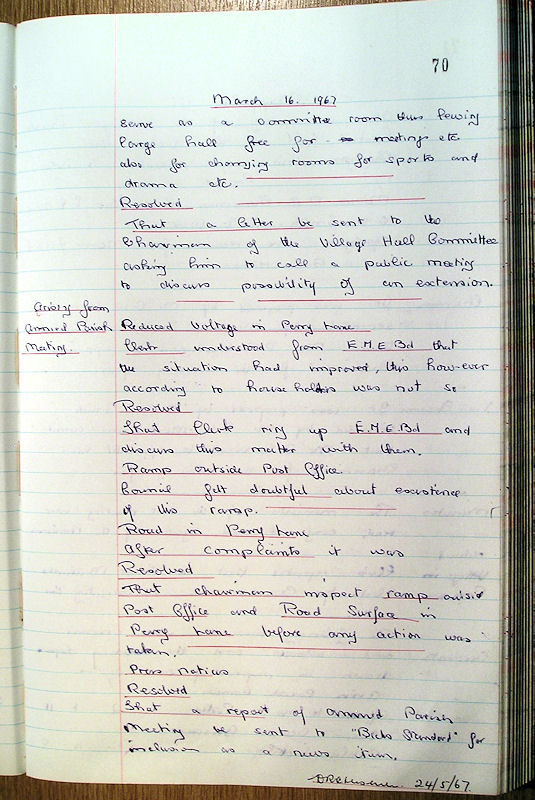 70
March 16. 1967
serve as a committee room thus leaving
large hall free for meetings etc
also for changing rooms for sports and
drama etc.
Resolved
That a letter be sent to the
Chairman of the Village Hall Committee
asking him to call a public meeting
to discuss possibility of an extension.
Arising from
Annual Parish
Meeting.
Reduced Voltage in Perry Lane
Clerk understood from E.M.E.Bd that
the situation had improved, this how-ever
according to house holders was not so
Resolved
That Clerk ring up E.M.E.Bd and
discuss this matter with them.
Ramp outside Post Office.
Council felt doubtful about existence
of this ramp.
Road in Perry Lane
After complaints it was
Resolved
That chairman inspect ramp outside
Post Office and Road Surface in
Perry Lane before any action was
taken.
Press notices
Resolved
That a report of annual Parish
Meeting be sent to "Bucks Standard" for
inclusion as a news item.
24/5/67.